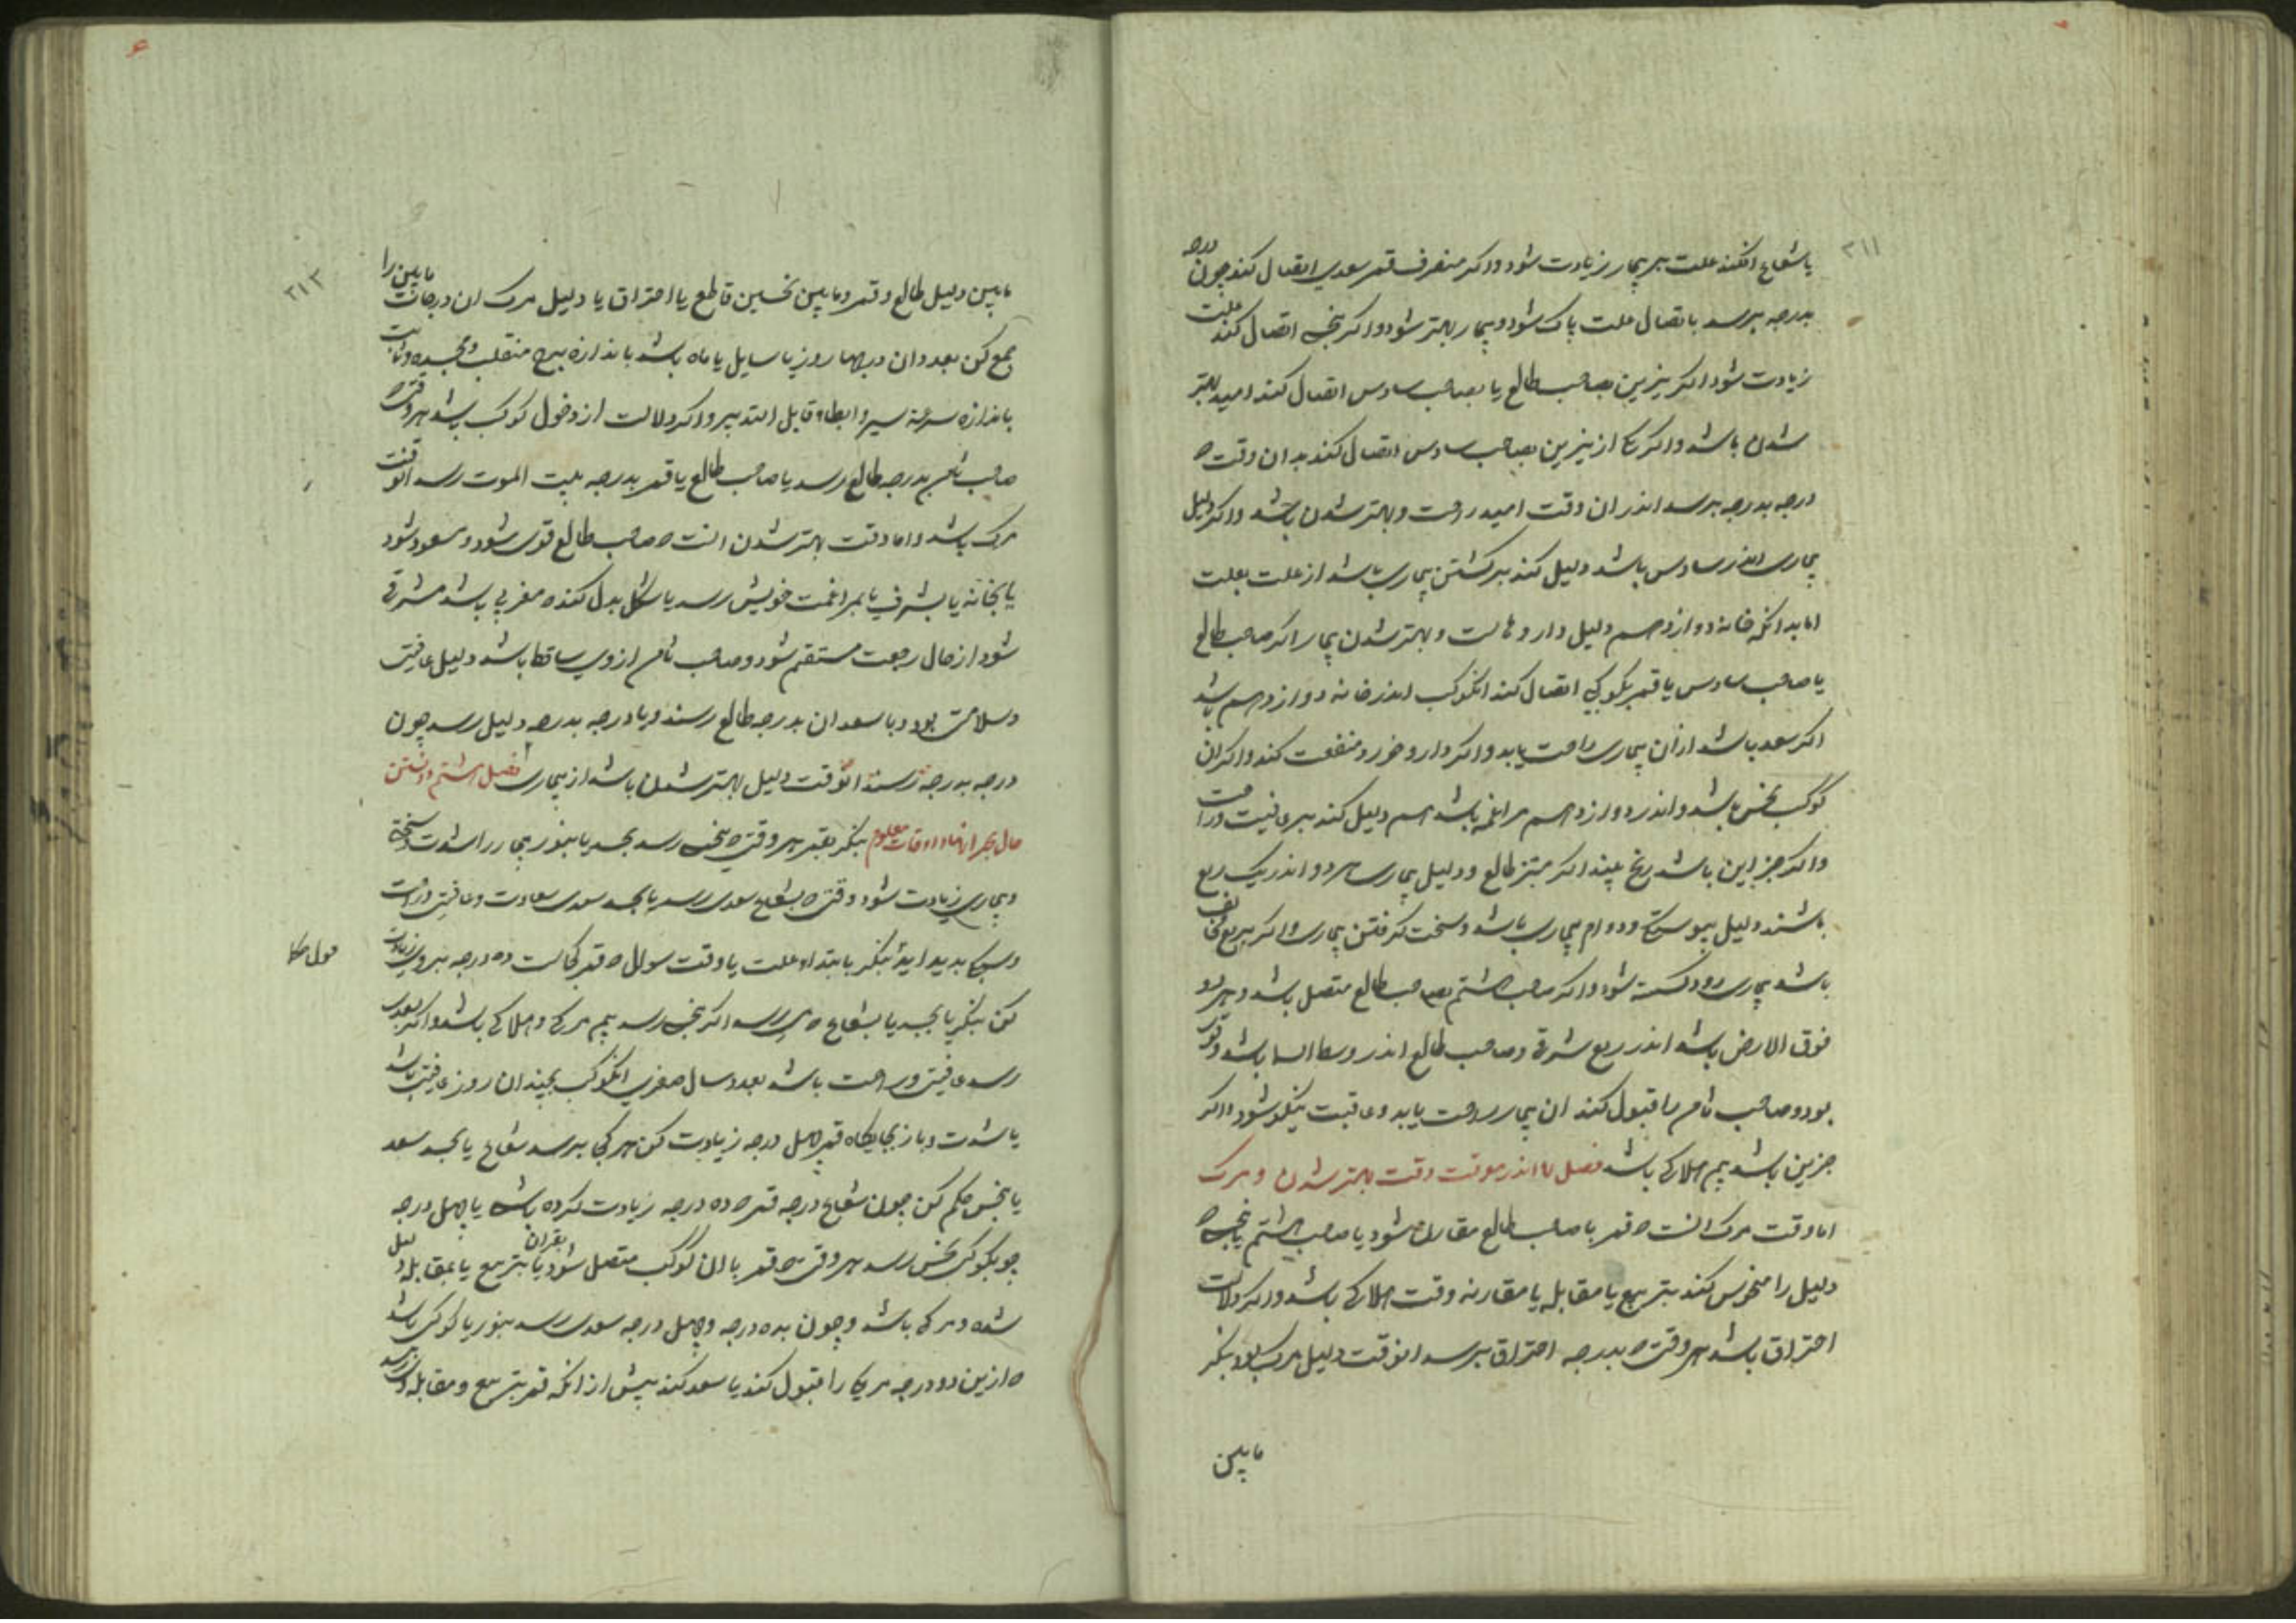 ۳۱۱
یا شعاع افکند علت بر بیمار زیادت شود و اگر منصرف قمر سعدی اتصال کند چون درجه
بدرجه برسد باتصال علت پاک شود و بیمار بهتر شود و اگر بنحس اتصال کند علت
زیادت شود اگر نیرین بصاحب طالع یا بصاحب سادس اتصال کند امید بهتر
شدن باشد و اگر یکی از نیرین بصاحب سادس اتصال کند بدان وقت که
درجه بدرجه برسد اندر ان وقت امید راحت و بهتر شدن باشد و اگر دلیل
بیماری اندر سادس باشد دلیل کند بر کشتن بیماری باشد از علت بعلت
اما بدانکه خانه دوازدهم دلیل داروهاست و بهتر شدن بیمار اگر صاحب طالع
یا صاحب سادس یا قمر بکوکبی اتصال کند انکوکب اندر خانه دوازدهم باشد
اگر سعد باشد از ان بیماری راحت یابد و اگر دارو خورد منفعت کند و اگر ان
کوکب نحس باشد و اندر دوازدهم مراغمه باشد هم دلیل کند بر عافیت و راحت
و اگر جز این باشد رنج بیند اگر مبتز طالع و دلیل بیماری هر دو اندر یک ربع
باشند دلیل پیوستگی و دوام بیماری باشد و سخت گرفتن بیماری و اگر بربع مخالف
باشد بیماری زود گسسته شود و اگر صاحب هشتم بصاحب طالع متصل باشد و هر دو
فوق الارض باشد اندر ربع شرقی و صاحب طالع اندر وسط السما باشد و قوی
بود و صاحب ثامن را قبول کند ان بیمار راحت یابد و عاقبت نیکو شود و اگر
جزین باشد بیم هلاکی باشد فصل ۷ اندر موقت وقت بهتر شدن و مرگ
اما وقت مرگ انست که قمر با صاحب طالع مقارن شود یا صاحب هشتم یا نحسی که
دلیل را منحوس کند بتربیع یا مقابله یا مقارنه وقت هلاکی باشد و اگر دلالت
احتراق باشد هر وقت که بدرجه احتراق برسد انوقت دلیل مرگ بود بنگر
مابین
۳۱۳
مابین دلیل طالع و قمر و مابین نحسین قاطع یا احتراق یا دلیل مرگ ان درجات مابین را
جمع کن بعدد ان درجها روز یا سایل یا ماه باشد باندازه برج منقلب و مجسده و ثابت
باندازه سرعة سیر و ابطا و قابل التدبیر و اگر دلالت از دخول کوکب باشد هر وقت که
صاحب ثامن بدرجه طالع رسد یا صاحب طالع یا قمر بدرجه بیت الموت رسد انوقت
مرگ باشد و اما وقت بهتر شدن انست که صاحب طالع قوی شود و مسعود شود
یا بخانه یا بشرف یا بمراغمت خویش رسد یا شکل بدل کند که مغربی باشد مشرقی
شود از حال رجعت مستقیم شود و صاحب ثامن از وی ساقط باشد دلیل عافیت
و سلامتی بود و یا سعدان بدرجه طالع رسند و یا درجه بدرجه دلیل رسد چون
درجه بدرجه رسند انوقت دلیل بهتر شدن باشد از بیماری فصل هشتم دانستن
حال بحرانها و اوقات معلوم بنگر بقمر هر وقتی که بنحس رسد بجسد یا بنور بیمار را شدت و سختی
و بیماری زیادت شود و وقتی که بشعاع سعدی رسد یا بجسد سعدی سعادت و عافیت و راحت
و سبکی پدید اید بنگر بابتدا علت یا وقت سوال که قمر کجاست ده درجه بر وی زیادت
کن بنگر تا بجسد یا بشعاع که می رسد اگر بنحس رسد بیم مرگی و هلاکی باشد و اگر بسعدی
رسد عافیتی و راحت باشد بعدد سال صغری انکوکب بچندان روز عافیت باشد
یا شدت و باز بجایگاه قمر چهل درجه زیادت کن هر کجا برسد شعاع یا بجسد سعد
یا نحس حکم کن چون شعاع درجه قمر که ده درجه زیادت کرده باشد یا چهل درجه
چو بکوکب نحس رسد هر وقتی که قمر با ان کوکب متصل شود بقران یا بتربیع یا بمقابله دلیل
شدة و مرگی باشد و چون بده درجه و چهل درجه سعدی رسد بنور یا کوکبی باشد
که ازین دو درجه هر یکی را قبول کند یا سعد کند پیش از انکه قمر بتربیع و مقابله وی رسد